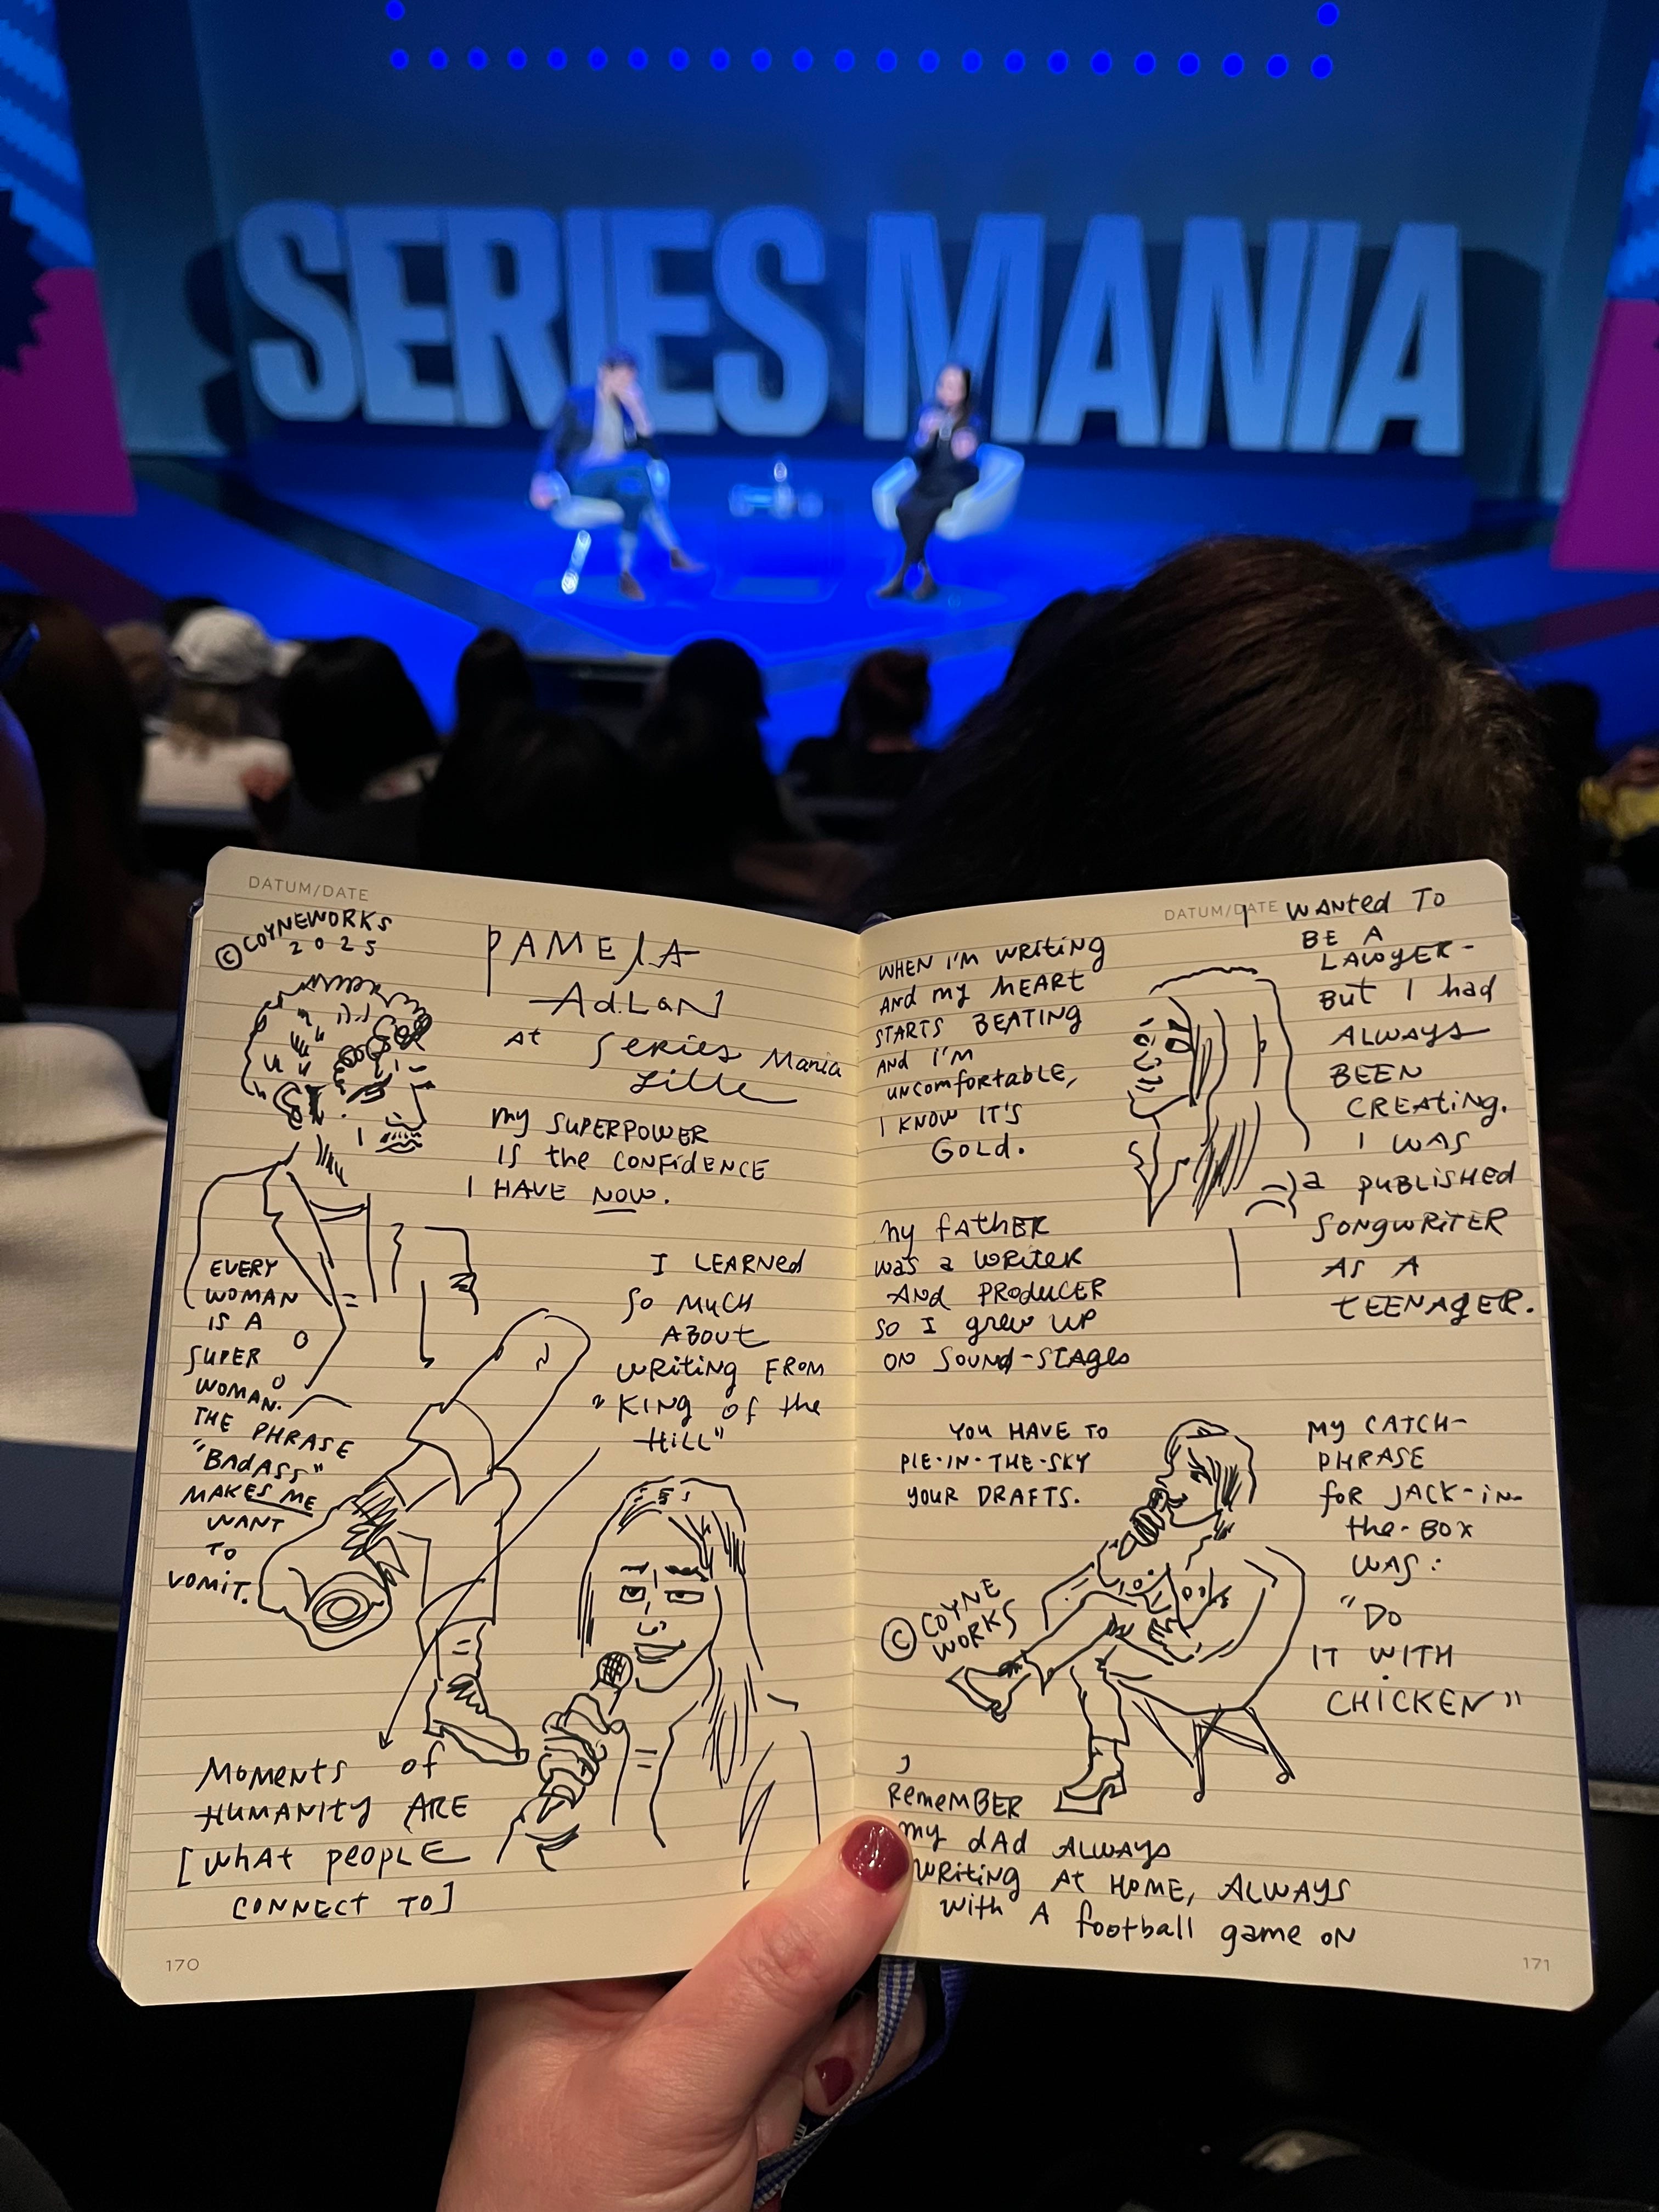 SERIES MANIA
DATUM/DATE
© COYNEWORKS
2025
PAMELA
AdLON
At Series Mania
Lille
My SUPERPOWER
IS the CONFIDENCE
I HAVE NOW.
EVERY
WOMAN
IS A
SUPER
WOMAN.
THE PHRASE
"BAdASS"
MAKES ME
WANT
TO
VOMIT.
I LEARNEd
SO MUCH
ABOUT
WRITING FROM
"KING of the
HILL"
MOMENTS of
HUMANITY ARE
[WHAT PEOPLE
CONNECT TO]
170
DATUM/DATE
WHEN I'M WRITING
ANd MY HEART
STARTS BEATING
ANd I'M
UNCOMFORTABLE,
I KNOW IT'S
GOLd.
I WANTEd TO
BE A
LAWYER-
BUT I had
ALWAYS
BEEN
CREATING.
I WAS
a PUBLISHEd
SONGWRITER
AS A
TEENAGER.
MY FATHER
WAS a WRITER
ANd PROdUCER
SO I grew UP
ON SOUNd-STAGES
YOU HAVE TO
PIE-IN-THE-SKY
YOUR DRAFTS.
MY CATCH-
PHRASE
for JACK-IN-
the-BOX
WAS:
"DO
IT WITH
CHICKEN"
© COYNE
WORKS
I
REMEMBER
MY dAd ALWAYS
WRITING AT HOME, ALWAYS
WITH A football game ON
171